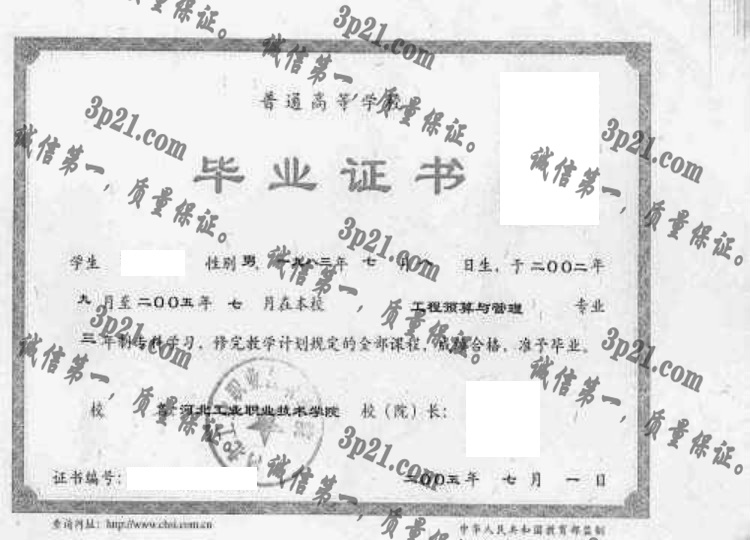 普通高等学校
毕业证书
学生 性别 男，一九八三年 七 月 八 日生，于二〇〇二年
九 月至二〇〇五年 七 月在本校 工程预算与管理 专业
三 年制专科学习，修完教学计划规定的全部课程，成绩合格，准予毕业。
校 名：河北工业职业技术学院 校（院）长：
证书编号： 二〇〇五年 七 月 一 日
查询网址：http://www.chsi.com.cn 中华人民共和国教育部监制
3p21.com
诚信第一，质量保证。
3p21.com
诚信第一，质量保证。
3p21.com
诚信第一，质量保证。
3p21.com
诚信第一，质量保证。
3p21.com
诚信第一，质量保证。
3p21.com
诚信第一，质量保证。
3p21.com
诚信第一，质量保证。